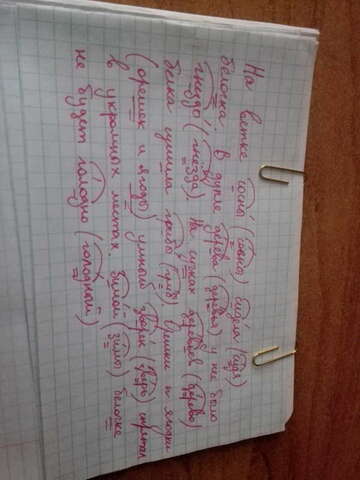 На ветке сосны (сосны) сидела (сидя)
белочка. В дупле дерева (деревья) у неё было
гнездо (гнёзда). На сучках деревцев (дерево)
белка сушила грибы (гриб). Орешки и ягодки
(орешек и ягоды) умный зверёк (зверь) спрятал
в укромных местах. Зимой (зимы) белочке
не будет голодно (голодный)